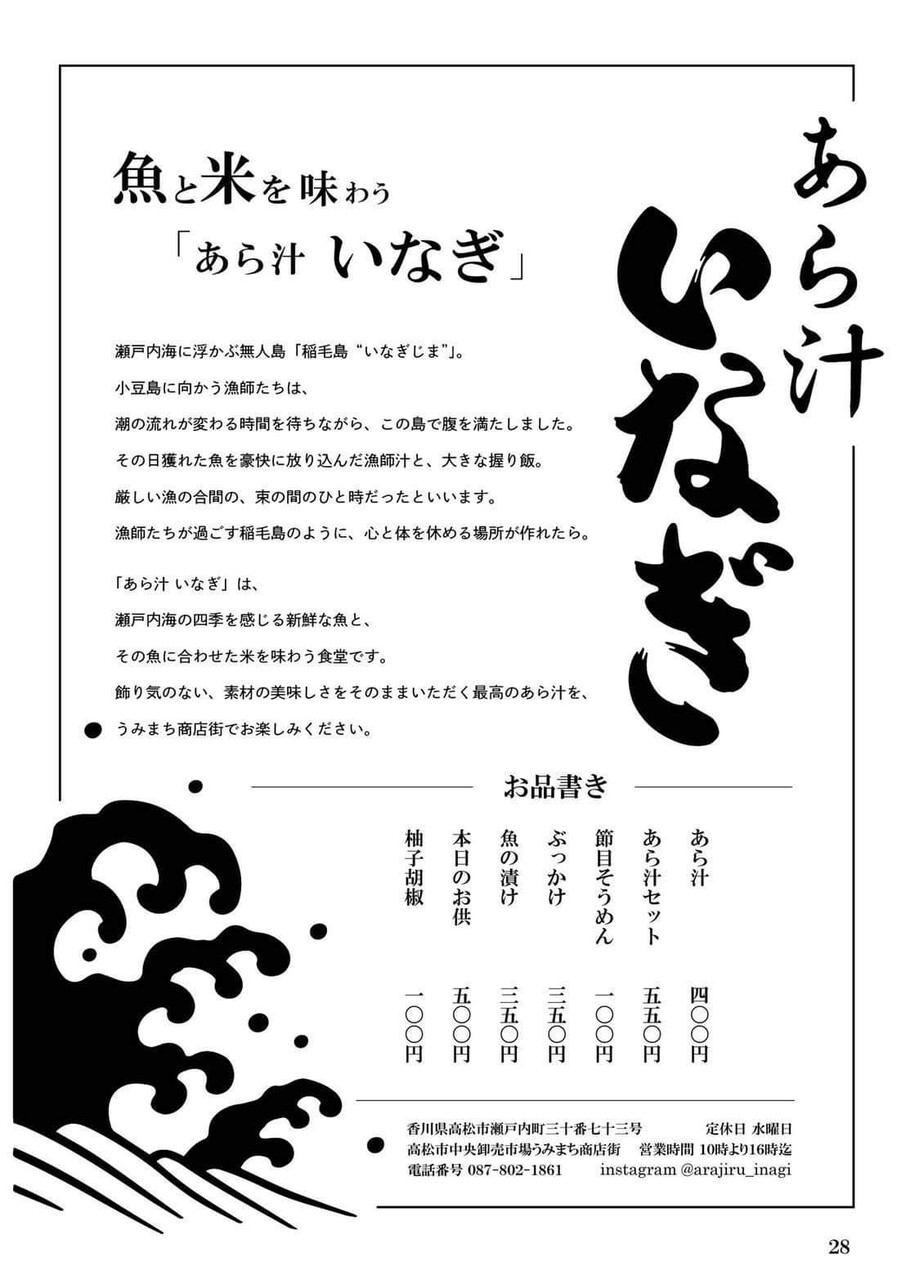 あら汁
いなぎ
魚と米を味わう
「あら汁 いなぎ」
瀬戸内海に浮かぶ無人島「稲毛島 “いなぎじま”」。
小豆島に向かう漁師たちは、
潮の流れが変わる時間を待ちながら、この島で腹を満たしました。
その日獲れた魚を豪快に放り込んだ漁師汁と、大きな握り飯。
厳しい漁の合間の、束の間のひと時だったといいます。
漁師たちが過ごす稲毛島のように、心と体を休める場所が作れたら。
「あら汁 いなぎ」は、
瀬戸内海の四季を感じる新鮮な魚と、
その魚に合わせた米を味わう食堂です。
飾り気のない、素材の美味しさをそのままいただく最高のあら汁を、
うみまち商店街でお楽しみください。
お品書き
あら汁 四〇〇円
あら汁セット 五五〇円
節目そうめん 一〇〇円
ぶっかけ 三五〇円
魚の漬け 三五〇円
本日のお供 五〇〇円
柚子胡椒 一〇〇円
香川県高松市瀬戸内町三十番七十三号 定休日 水曜日
高松市中央卸売市場うみまち商店街 営業時間 10時より16時迄
電話番号 087-802-1861 instagram @arajiru_inagi
28